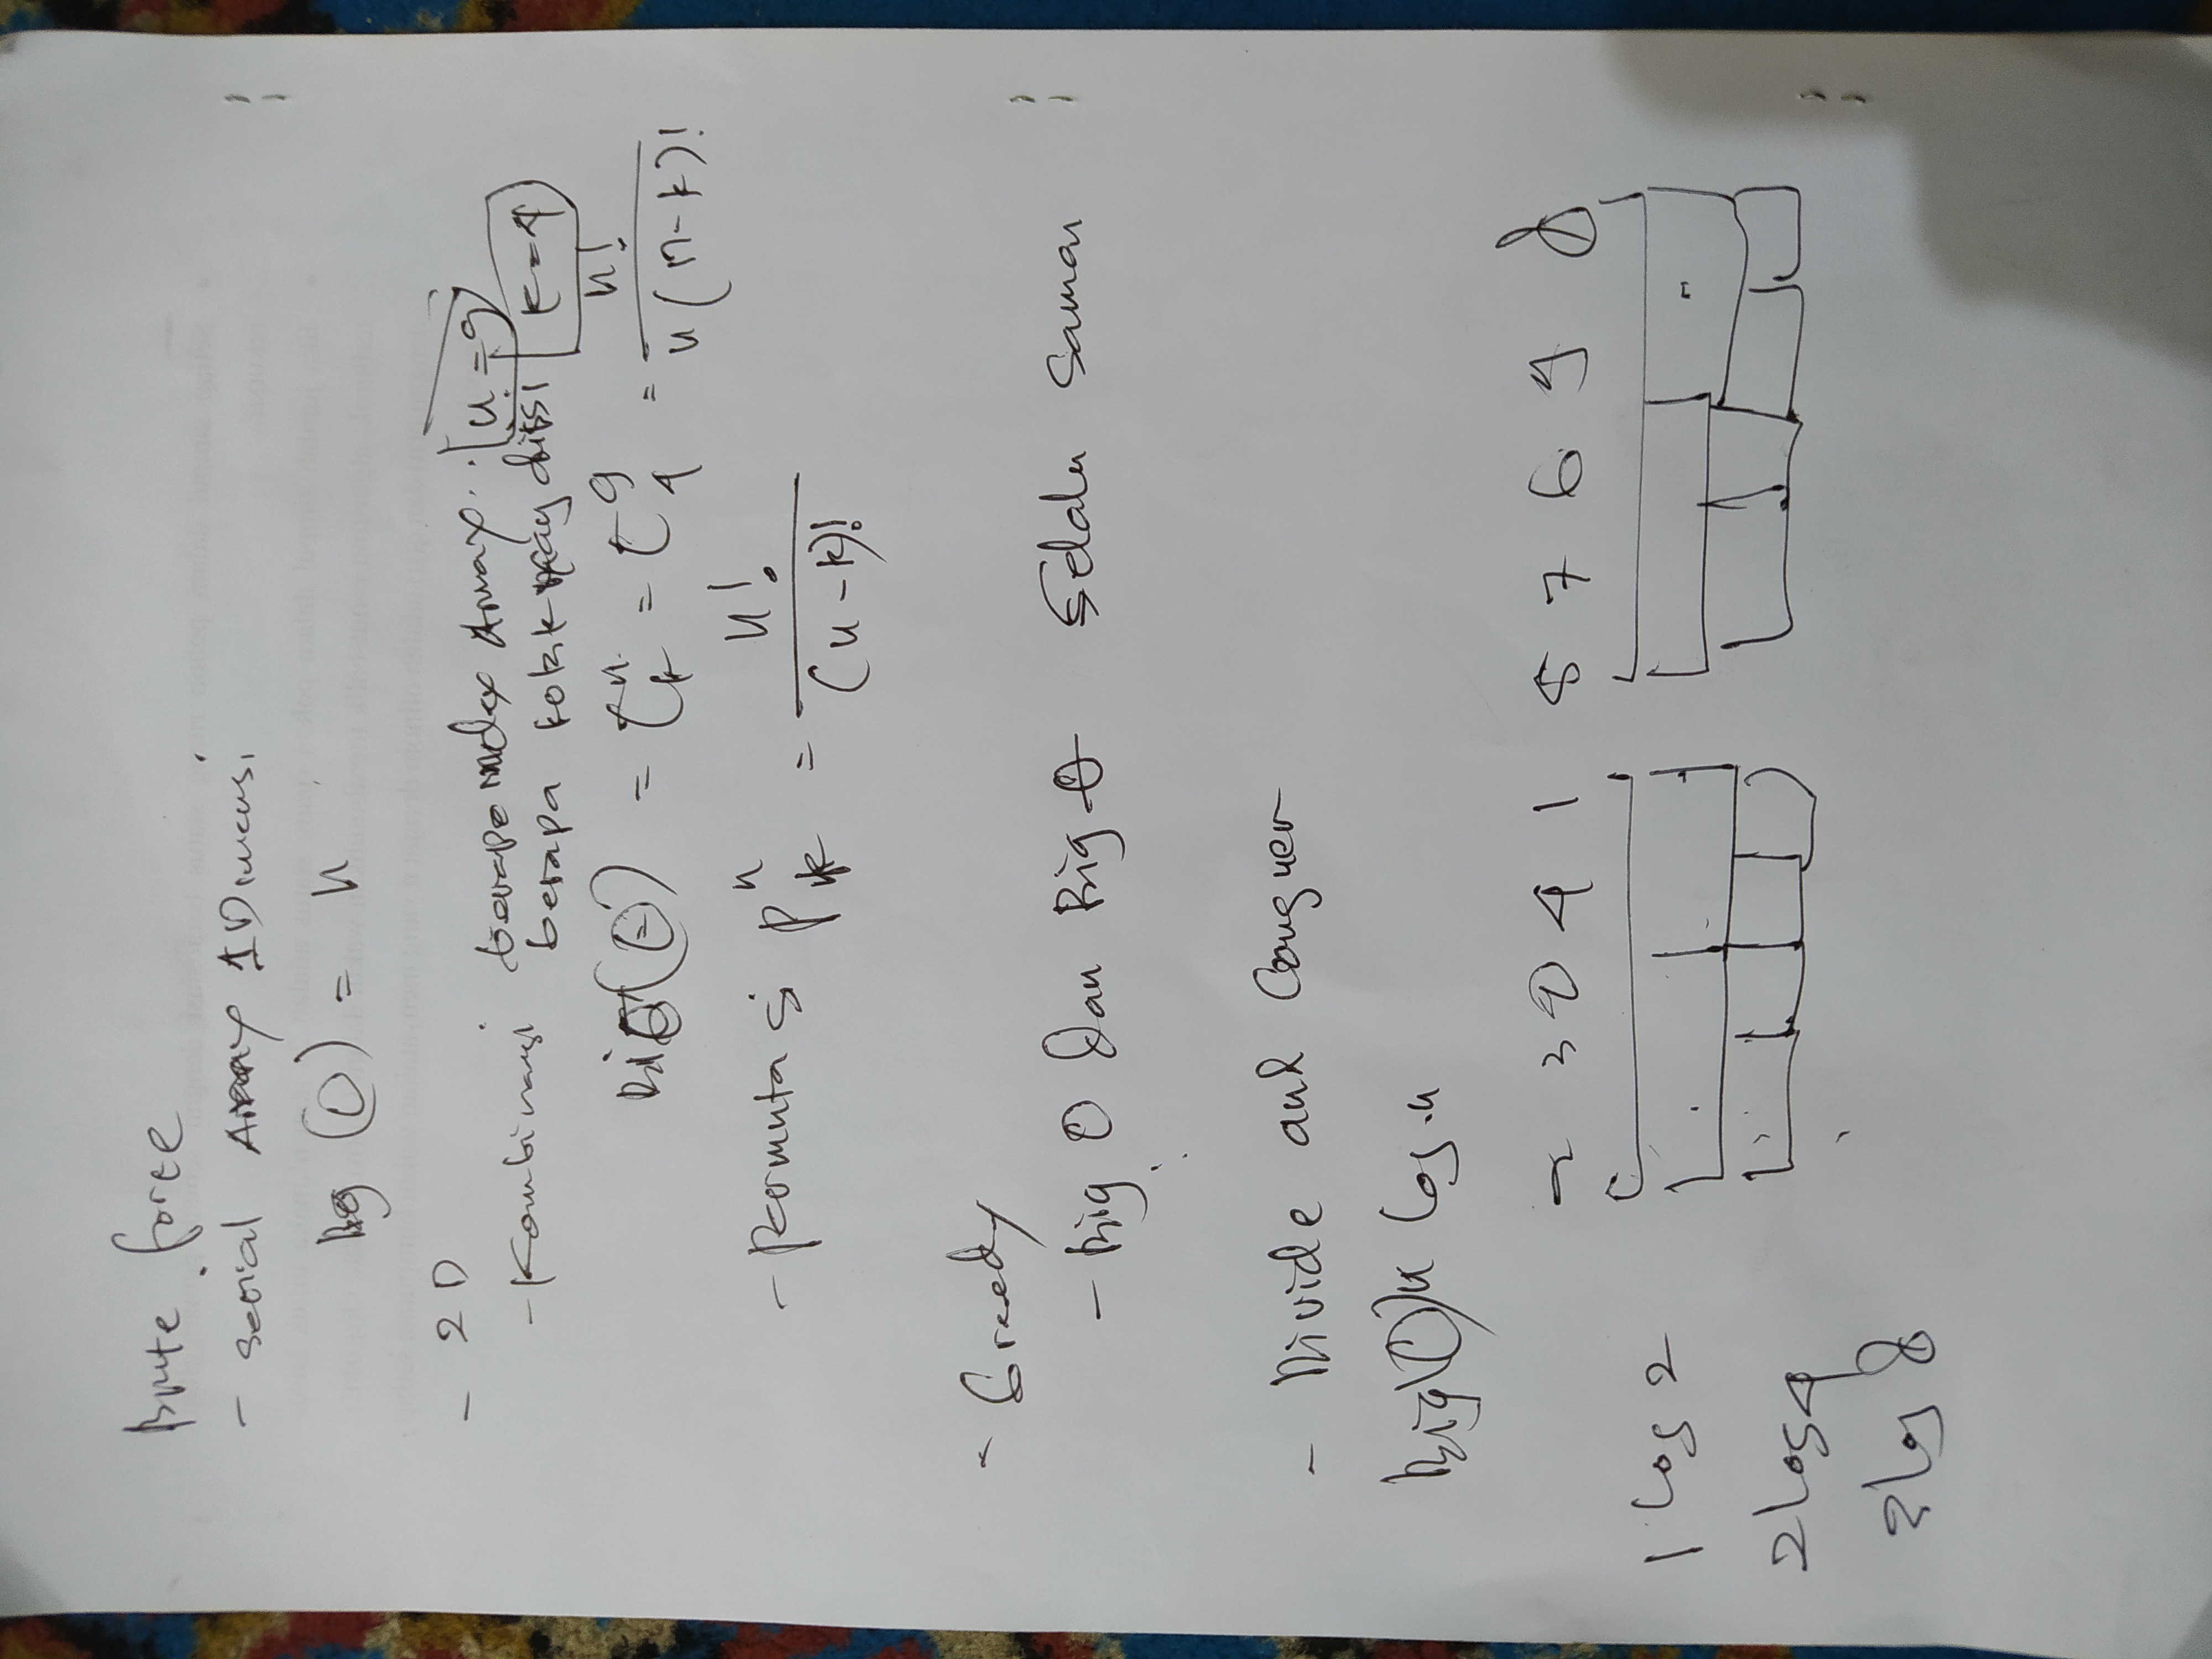 Brute force
- serial Array 1 Dimensi
Big (O) = n
- 2D
- Kombinasi berapa index Array. n = 9
berapa kotak yang diisi k = 4
Big (Θ) = C^n_k = C^9_4 = n! / n(n-k)!
- Permutasi P^n_k = n! / (n-k)!
- Greedy
- Big O dan Big Θ Selalu Sama
- Divide and Conquer
Big (O) n log n
2 3 0 4 1 5 7 6 9 8
1 log 2
2 log 4
3 log 8